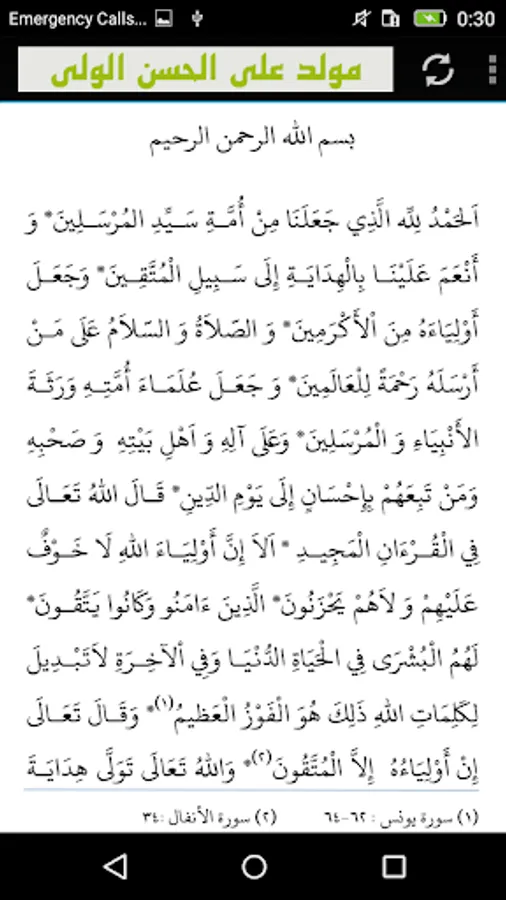 Emergency Calls... 0:30
مولد على الحسن الولى
بسم الله الرحمن الرحيم
اَلحَمْدُ لِلّٰه الَّذِي جَعَلَنَا مِنْ أُمَّـةِ سَيِّدِ المُرْسَلِينَ* وَ
أَنْعَمَ عَلَيْنَـا بِالْهِدَايَـةِ إِلَى سَبِيلِ الْمُتَّقِينَ* وَجَعَـلَ
أَوْلِيَاءَهُ مِنَ الْأَكْرَمِينَ* وَ الصَّلَاةُ وَ السَّلَامُ عَلَى مَـنْ
أَرْسَلَهُ رَحْمَةً لِلْعَالَمِينَ* وَ جَعَـلَ عُلَمَاءَ أُمَّتِـهِ وَرَثَـةَ
الأَنْبِيَاءِ وَ الْمُرْسَلِينَ* وَعَلَى آلِهِ وَ اَهْلِ بَيْتِهِ وَ صَحْبِهِ
وَمَنْ تَبِعَهُمْ بِإِحْسَانٍ إِلَى يَوْمِ الدِّينِ* قَـالَ اللهُ تَعَـالَى
فِي الْقُـرْءَانِ الْمَجِيـدِ * اَلَا إِنَّ أَوْلِيَـاءَ اللهِ لَا خَـوْفٌ
عَلَيْهِمْ وَ لَاهُمْ يَحْزَنُونَ* الَّذِينَ ءَامَنُو وَكَانُوا يَتَّقُـونَ*
لَهُمُ الْبُشْرَى فِي الْحَيَاةِ الدُّنْيَـا وَفِي الْآخِـرَةِ لَاتَبْدِيلَ
لِكَلِمَاتِ اللهِ ذَلِكَ هُوَ الْفَوْزُ الْعَظِيمُ(١)* وَقَـالَ تَعَـالَى
إِنْ أَوْلِيَـاءُهُ إِلاَّ الْمُتَّقُونَ(٢)* وَاللهُ تَعَالَى تَوَلَّى هِدَايَـةَ
(١) سورة يونس : ٦٢-٦٤ (٢) سورة الأنفال :٣٤